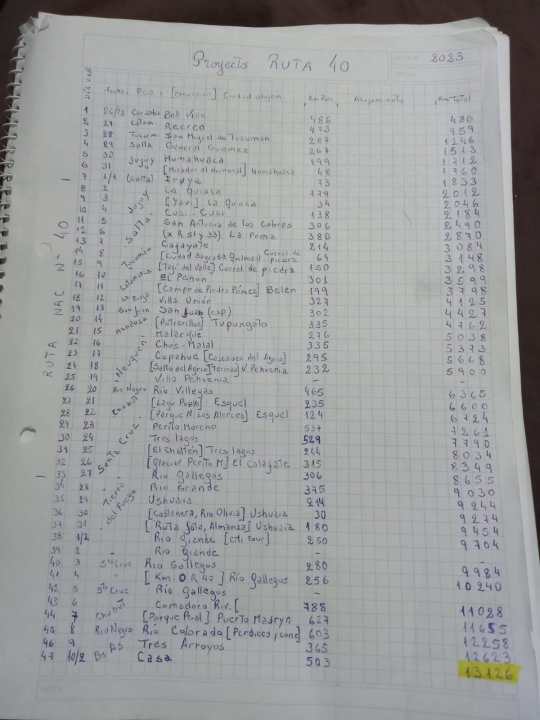 Proyecto RUTA 40 2023
Km Total
RUTA NAC N° 40
1 26/12 Cordoba Bell Ville 486 486
2 27 Recreo 473 959
3 28 Tucum San Miguel de Tucuman 287 1246
4 29 Salta General Guemes 267 1513
5 30 Jujuy Humahuaca 199 1712
6 31 Humahuaca 48 1760
7 1/1 (Salta) Iruya 73 1833
8 2 Jujuy La Quiaca 179 2012
9 3 [Yavi] La Quiaca 34 2046
10 4 Cusi-Cusi 138 2184
11 5 Salta San Antonio de los Cobres 306 2490
12 6 La Poma 380 2870
13 7 Cafayate 214 3084
14 8 64 3148
15 9 [Tafi del Valle] Corral de piedra 150 3298
16 10 El Peñon 301 3599
17 11 [Campo de Piedra Pómez] Belen 199 3798
18 12 Villa Union 327 4125
19 13 San Juan (cap) 302 4427
20 14 Mendoza [Potrerillos] Tupungato 335 4762
21 15 Malargüe 276 5038
22 16 Neuquen Chos-Malal 335 5373
23 17 Copahue 295 5668
24 18 V. Pehuenia 232 5900
25 19 Villa Pehuenia - -
26 20 Rio Negro Rio Villegas 465 6365
27 21 Chubut Esquel 235 6600
28 22 [Parque N. Los Alerces] Esquel 124 6724
29 23 Perito Moreno 537 7261
30 24 Santa Cruz Tres lagos 529 7790
31 25 [El chalten] Tres lagos 244 8034
32 26 [Glaciar Perito M] El Calafate 315 8349
33 27 Rio gallegos 306 8655
34 28 Tierra del Fuego Rio Grande 375 9030
35 29 Ushuaia 214 9244
36 30 Ushuaia 30 9274
37 31 Ushuaia 180 9454
38 1/2 " Rio grande 250 9704
39 2 " Rio grande - -
40 3 Sta Cruz Rio Gallegos 280 9984
41 4 " [Km: 0 R 40] Rio Gallegos 256 10240
42 5 Sta Cruz Rio gallegos - -
43 6 " Comodoro Riv. [ 788 11028
44 7 Chubut Puerto Madryn 627 11655
45 8 Rio Negro Rio Colorado 603 12258
46 9 BS Tres Arroyos 365 12623
47 10/2 Bs Casa 503 13126